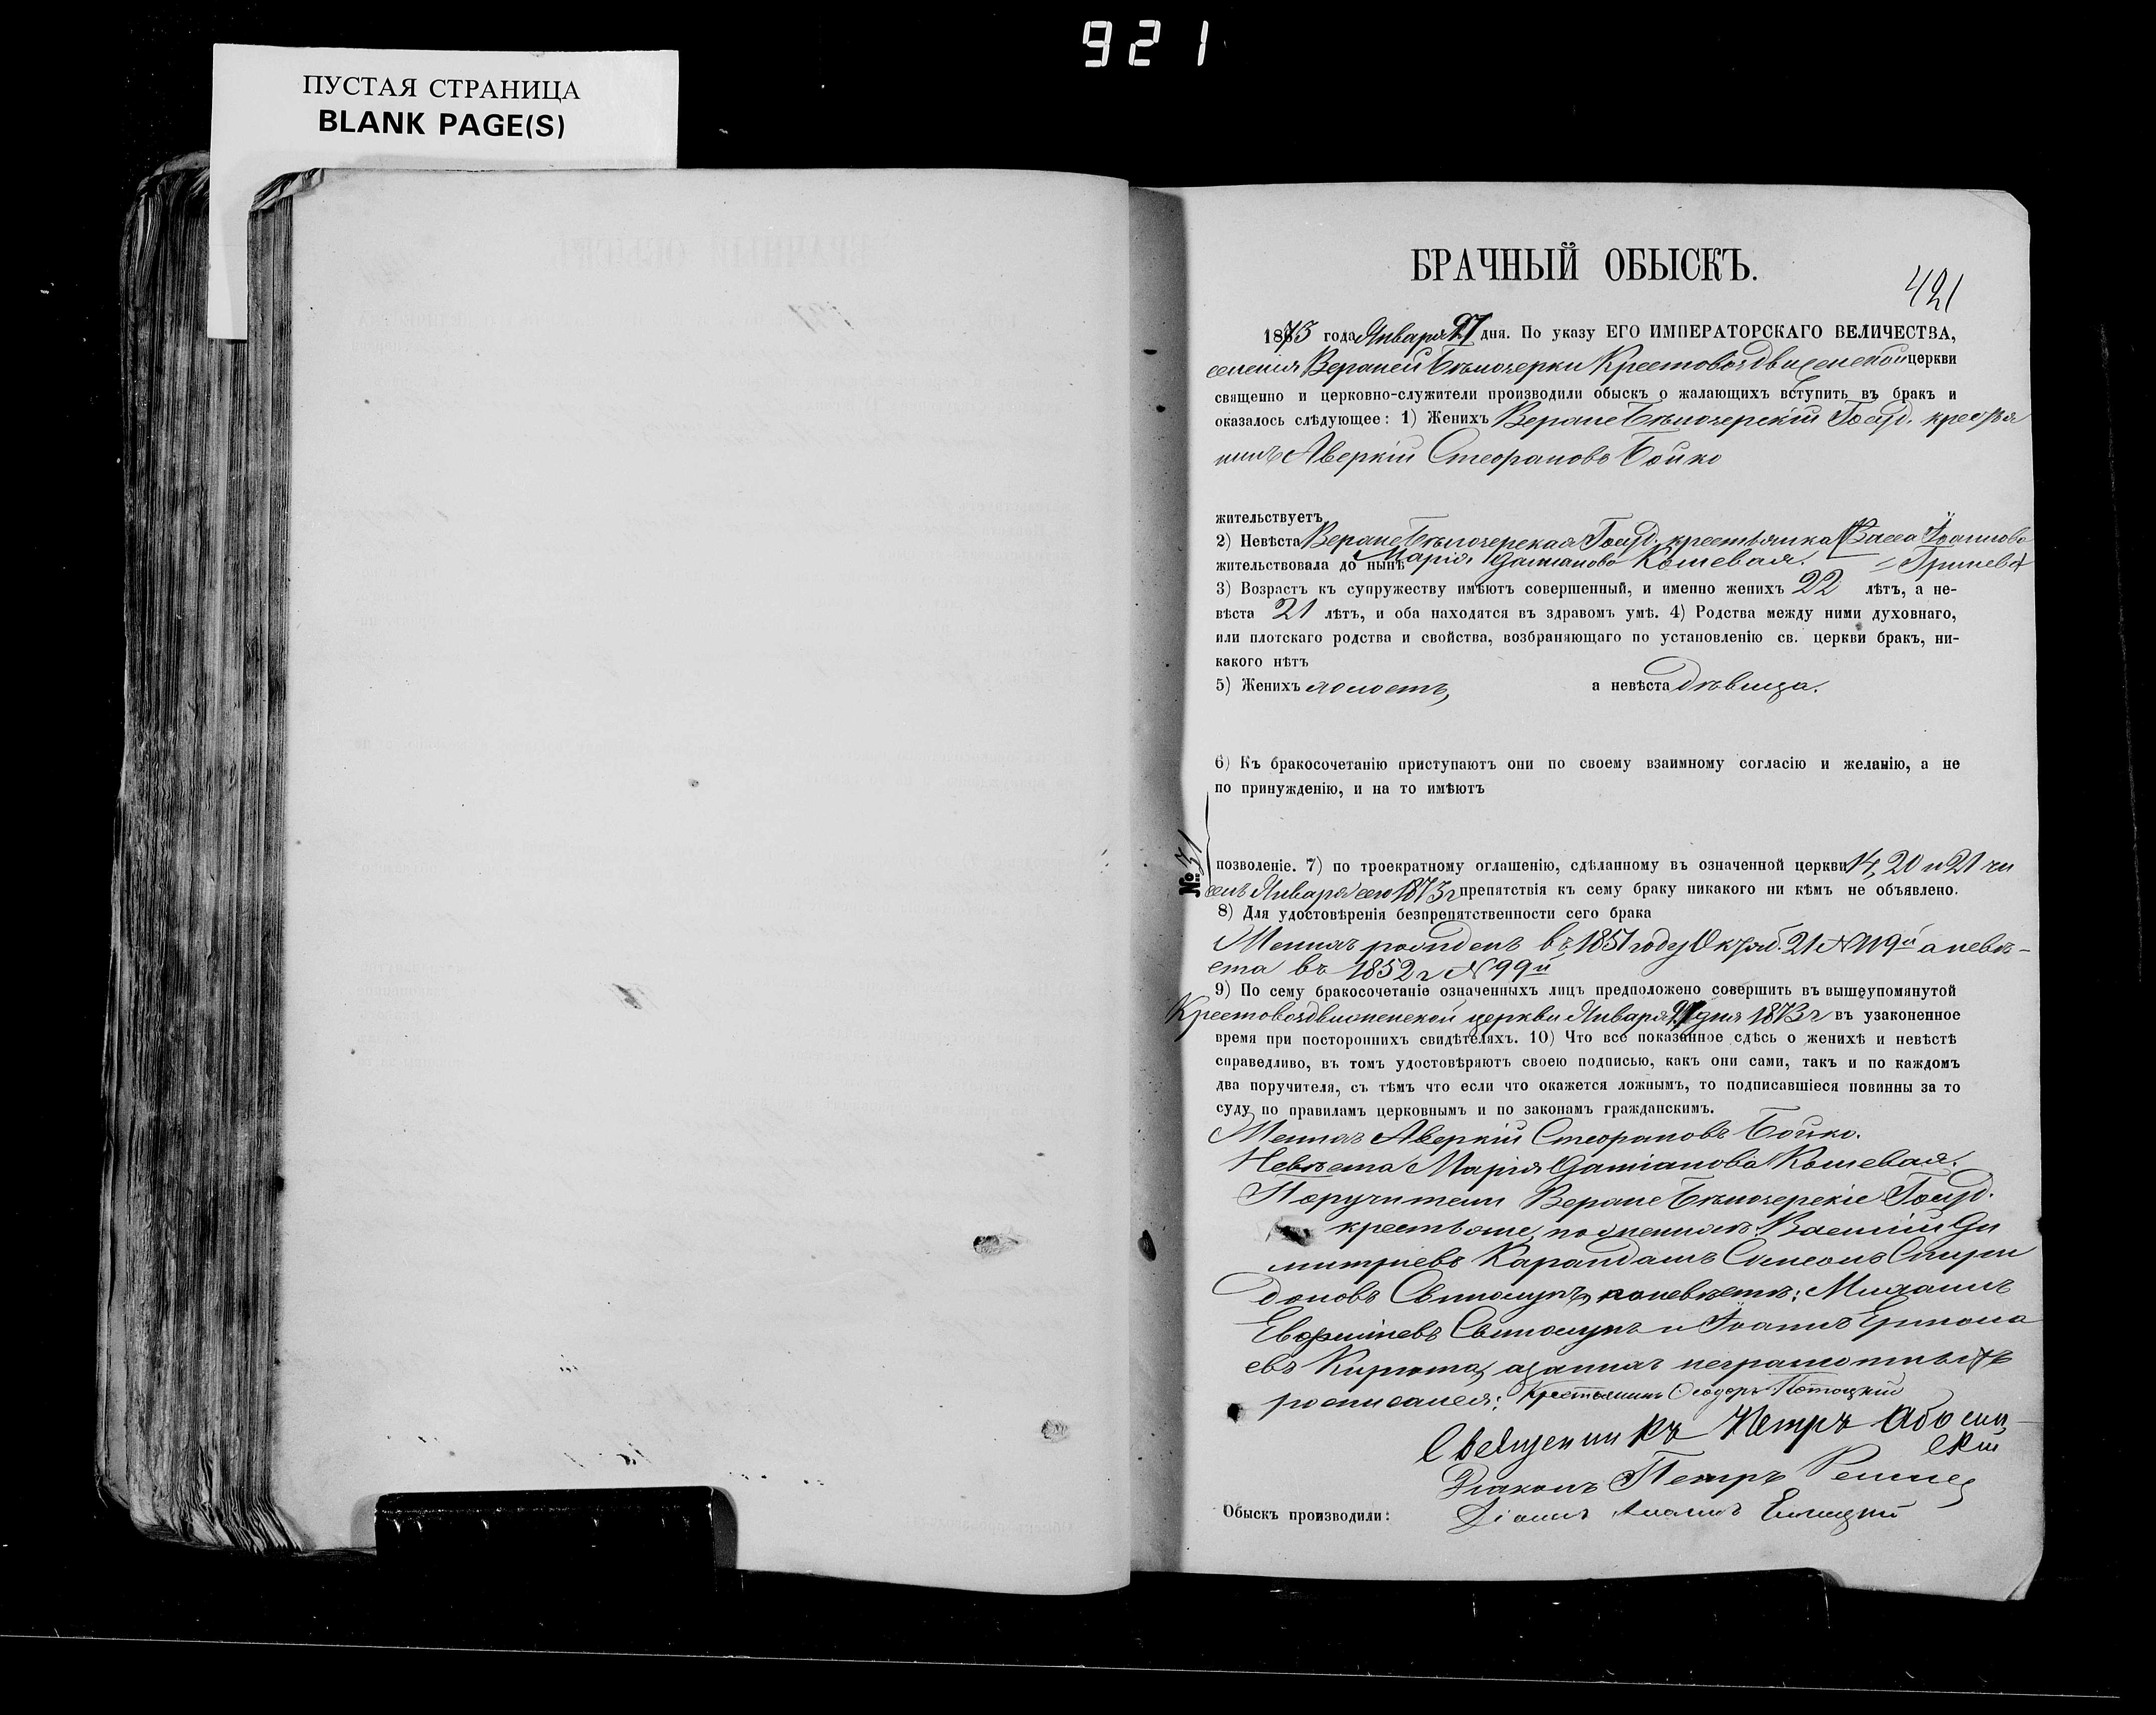 921
ПУСТАЯ СТРАНИЦА
BLANK PAGE(S)
БРАЧНЫЙ ОБЫСКЪ.
421
1873 года Января 27 дня. По указу ЕГО ИМПЕРАТОРСКАГО ВЕЛИЧЕСТВА,
селенія Верхней Бѣлозерки Крестовоздвиженской церкви
священно и церковно-служители производили обыскъ о жалающихъ вступить въ бракъ и
оказалось слѣдующее: 1) Женихъ Верхне Бѣлозерскій Госуд. крестья
нинъ Аверкій Стефановъ Бойко
жительствуетъ
2) Невѣста Верхне Бѣлозерская Госуд. крестьянка Васса Іоаннова
жительствовала до нынѣ Марія Даміанова Кошевая. Гринева
3) Возрастъ къ супружеству имѣютъ совершенный, и именно женихъ 22 лѣтъ, а не-
вѣста 21 лѣтъ, и оба находятся въ здравомъ умѣ. 4) Родства между ними духовнаго,
или плотскаго родства и свойства, возбраняющаго по установленію св. церкви бракъ, ни-
какого нѣтъ
5) Женихъ холостъ, а невѣста дѣвица.
6) Къ бракосочетанію приступаютъ они по своему взаимному согласію и желанію, а не
по принужденію, и на то имѣютъ
№ 31
позволеніе. 7) по троекратному оглашенію, сдѣланному въ означенной церкви 14, 20 и 21 чи
селъ Января сего 1873 г препятствія къ сему браку никакого ни кѣмъ не объявлено.
8) Для удостовѣренія безпрепятственности сего брака
Женихъ рожденъ въ 1851 году Октяб. 21 № 119й а невѣ-
ста въ 1852 г № 99й
9) По сему бракосочетаніе означенныхъ лицъ предположено совершить въ вышеупомянутой
Крестовоздвиженской церкви Января 27 дня 1873 г въ узаконенное
время при постороннихъ свидѣтеляхъ. 10) Что все показанное сдѣсь о женихѣ и невѣстѣ
справедливо, въ томъ удостовѣряютъ своею подписью, какъ они сами, такъ и по каждомъ
два поручителя, съ тѣмъ что если что окажется ложнымъ, то подписавшіеся повинны за то
суду по правиламъ церковнымъ и по законамъ гражданскимъ.
Женихъ Аверкій Стефановъ Бойко.
Невѣста Марія Даміанова Кошевая.
Поручители Верхне Бѣлозерскіе Госуд.
крестьяне, по женихѣ: Василій Ди
митріевъ Карандашъ Симеонъ Спири
доновъ Свинолупъ, по невѣстѣ: Михаилъ
Евфиміевъ Свинолупъ и Іоаннъ Ермола
евъ Кирюта, а за нихъ неграмотныхъ
росписался: Крестьянинъ Ѳеодоръ Потоцкій
Священникъ Петръ
Діаконъ Петръ
Обыскъ производили: